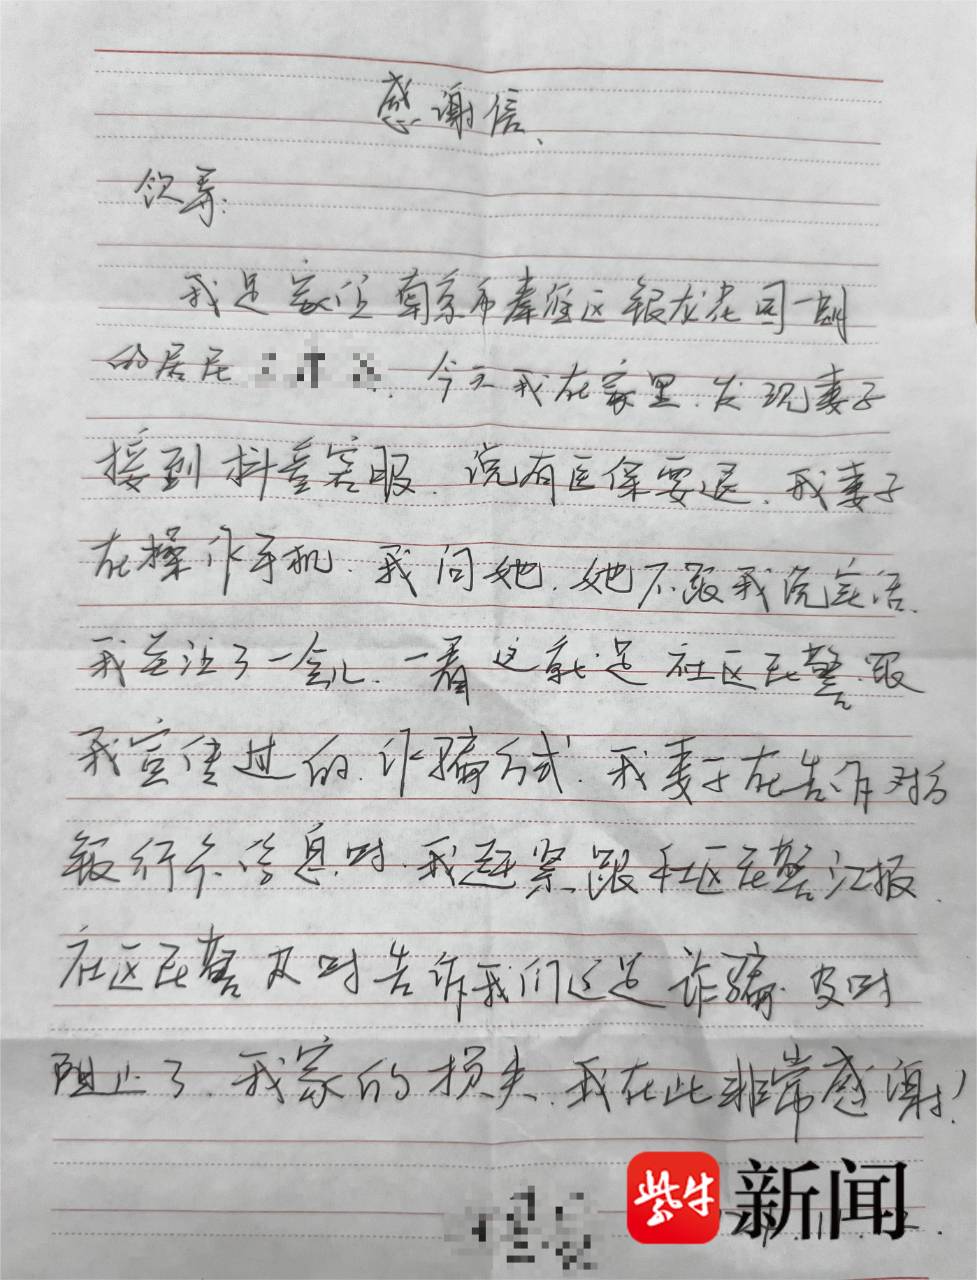 感谢信
我是家住南京市秦淮区银龙花园一期
的居民 今天我在家里.发现妻子
接到抖音客服.说有医保要退.我妻子
在操作手机.我问她.她不跟我说实话.
我关注了一会儿.一看这就是社区民警跟
我宣传过的.诈骗方式.我妻子在告诉对方
银行卡信息时.我赶紧跟社区民警汇报.
社区民警及时告诉我们这是诈骗.及时
阻止了.我家的损失.我在此非常感谢!
紫牛新闻